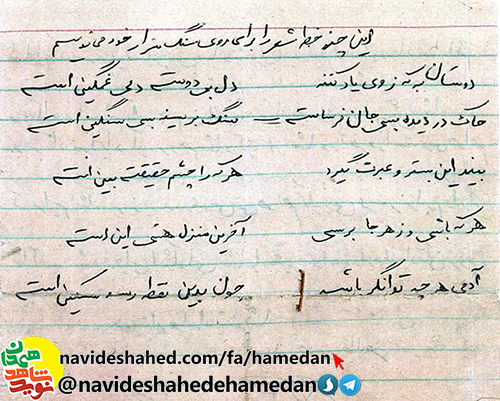 این چند خط شعر را برای روی سنگ مزار خود می نویسم
دوستان به که ز وی یاد کنند دل بی دوست دلی غمگین است
خاک در دیده بسی جان فرساست — سنگ بر سینه بسی سنگین است
بیند این بستر و عبرت گیرد هر که را چشم حقیقت بین است
هر که باشی و ز هر جا برسی آخرین منزل هستی این است
آدمی هر چه توانگر باشد چون بدین نقطه رسد مسکین است
نوید شاهد همدان
navideshahed.com/fa/hamedan
@navideshahedehamedan